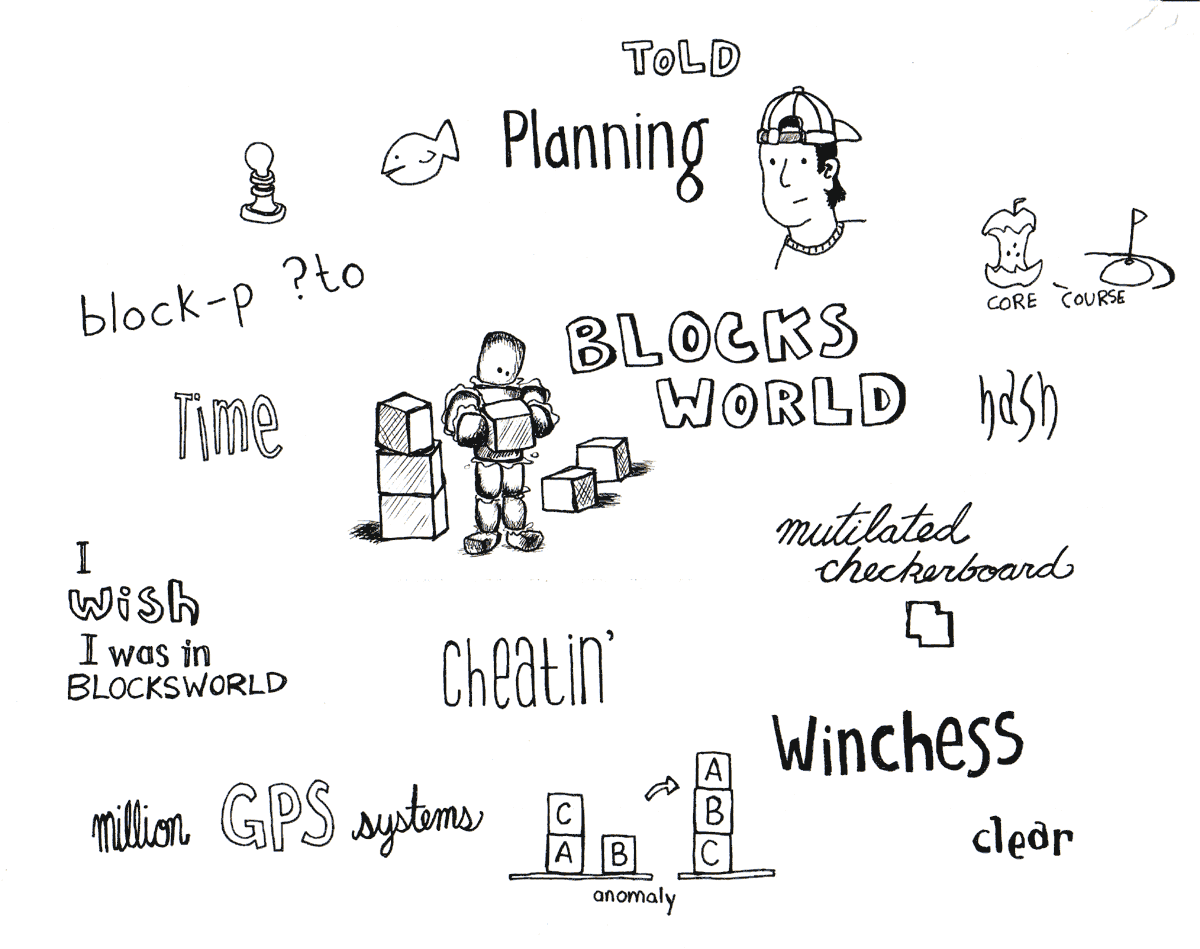 TOLD
Planning
block-p ?to
CORE COURSE
BLOCKS
WORLD
Time
hash
mutilated
checkerboard
I
wish
I was in
BLOCKSWORLD
Cheatin'
Winchess
million GPS systems
A
C B
A B C
anomaly
clear